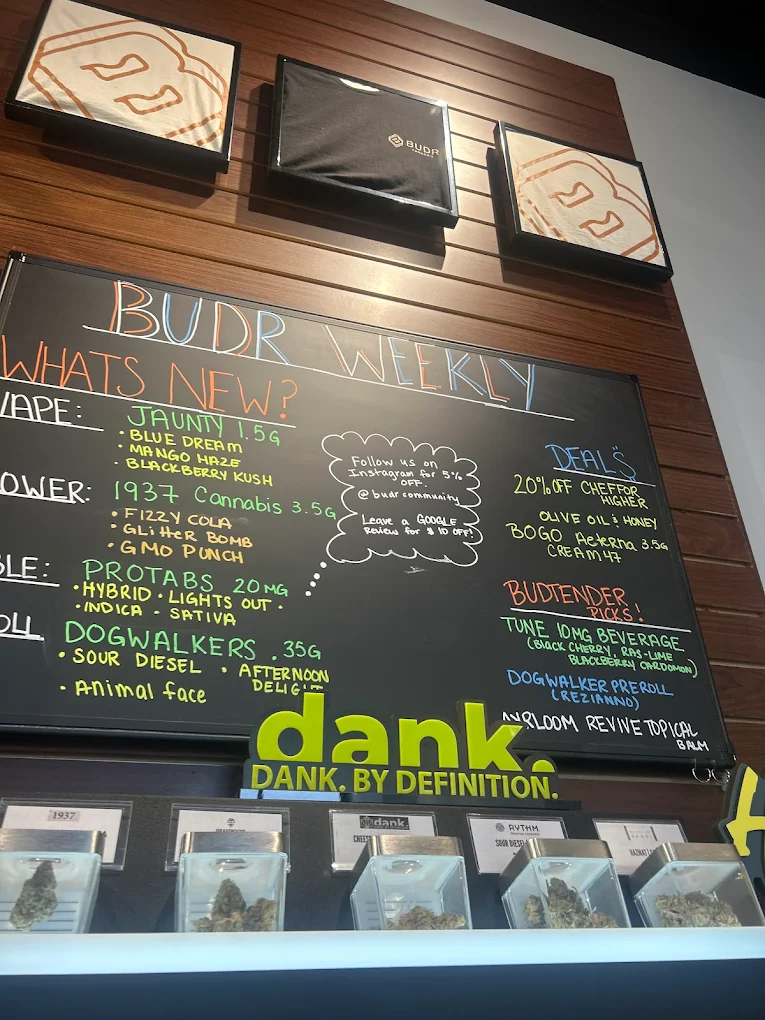 BUDR
BUDR WEEKLY
WHATS NEW?
VAPE:
JAUNTY 1.5G
• BLUE DREAM
• MANGO HAZE
• BLACKBERRY KUSH
OWER:
1937 Cannabis 3.5G
• FIZZY COLA
• GLitteR BOMB
• GMO PUNCH
BLE:
PROTABS 20MG
• HYBRID • LIGHTS OUT •
• INDICA • SATIVA
OLL
DOGWALKERS .35G
• SOUR DIESEL • AFTERNOON
DELIGHT
• Animal face
Follow us on
Instagram for 5%
OFF.
@budrcommunity
Leave a GOOGLE
Review for $10 OFF!
DEALS
20% OFF CHEFFOR
HIGHER
OLIVE OIL & HONEY
BOGO Aeterna 3.5G
CREAM 47
BUDTENDER
PICKS!
TUNE 10MG BEVERAGE
(BLACK CHERRY, RAS-LIME
BLACKBERRY CARDOMON)
DOGWALKER PREROLL
(REZIANNO)
AYRLOOM REVIVE TOPICAL
BALM
dank.
DANK. BY DEFINITION.
1937
dank
CHEES
RYTHM
SOUR DIESEL
HAZMAT